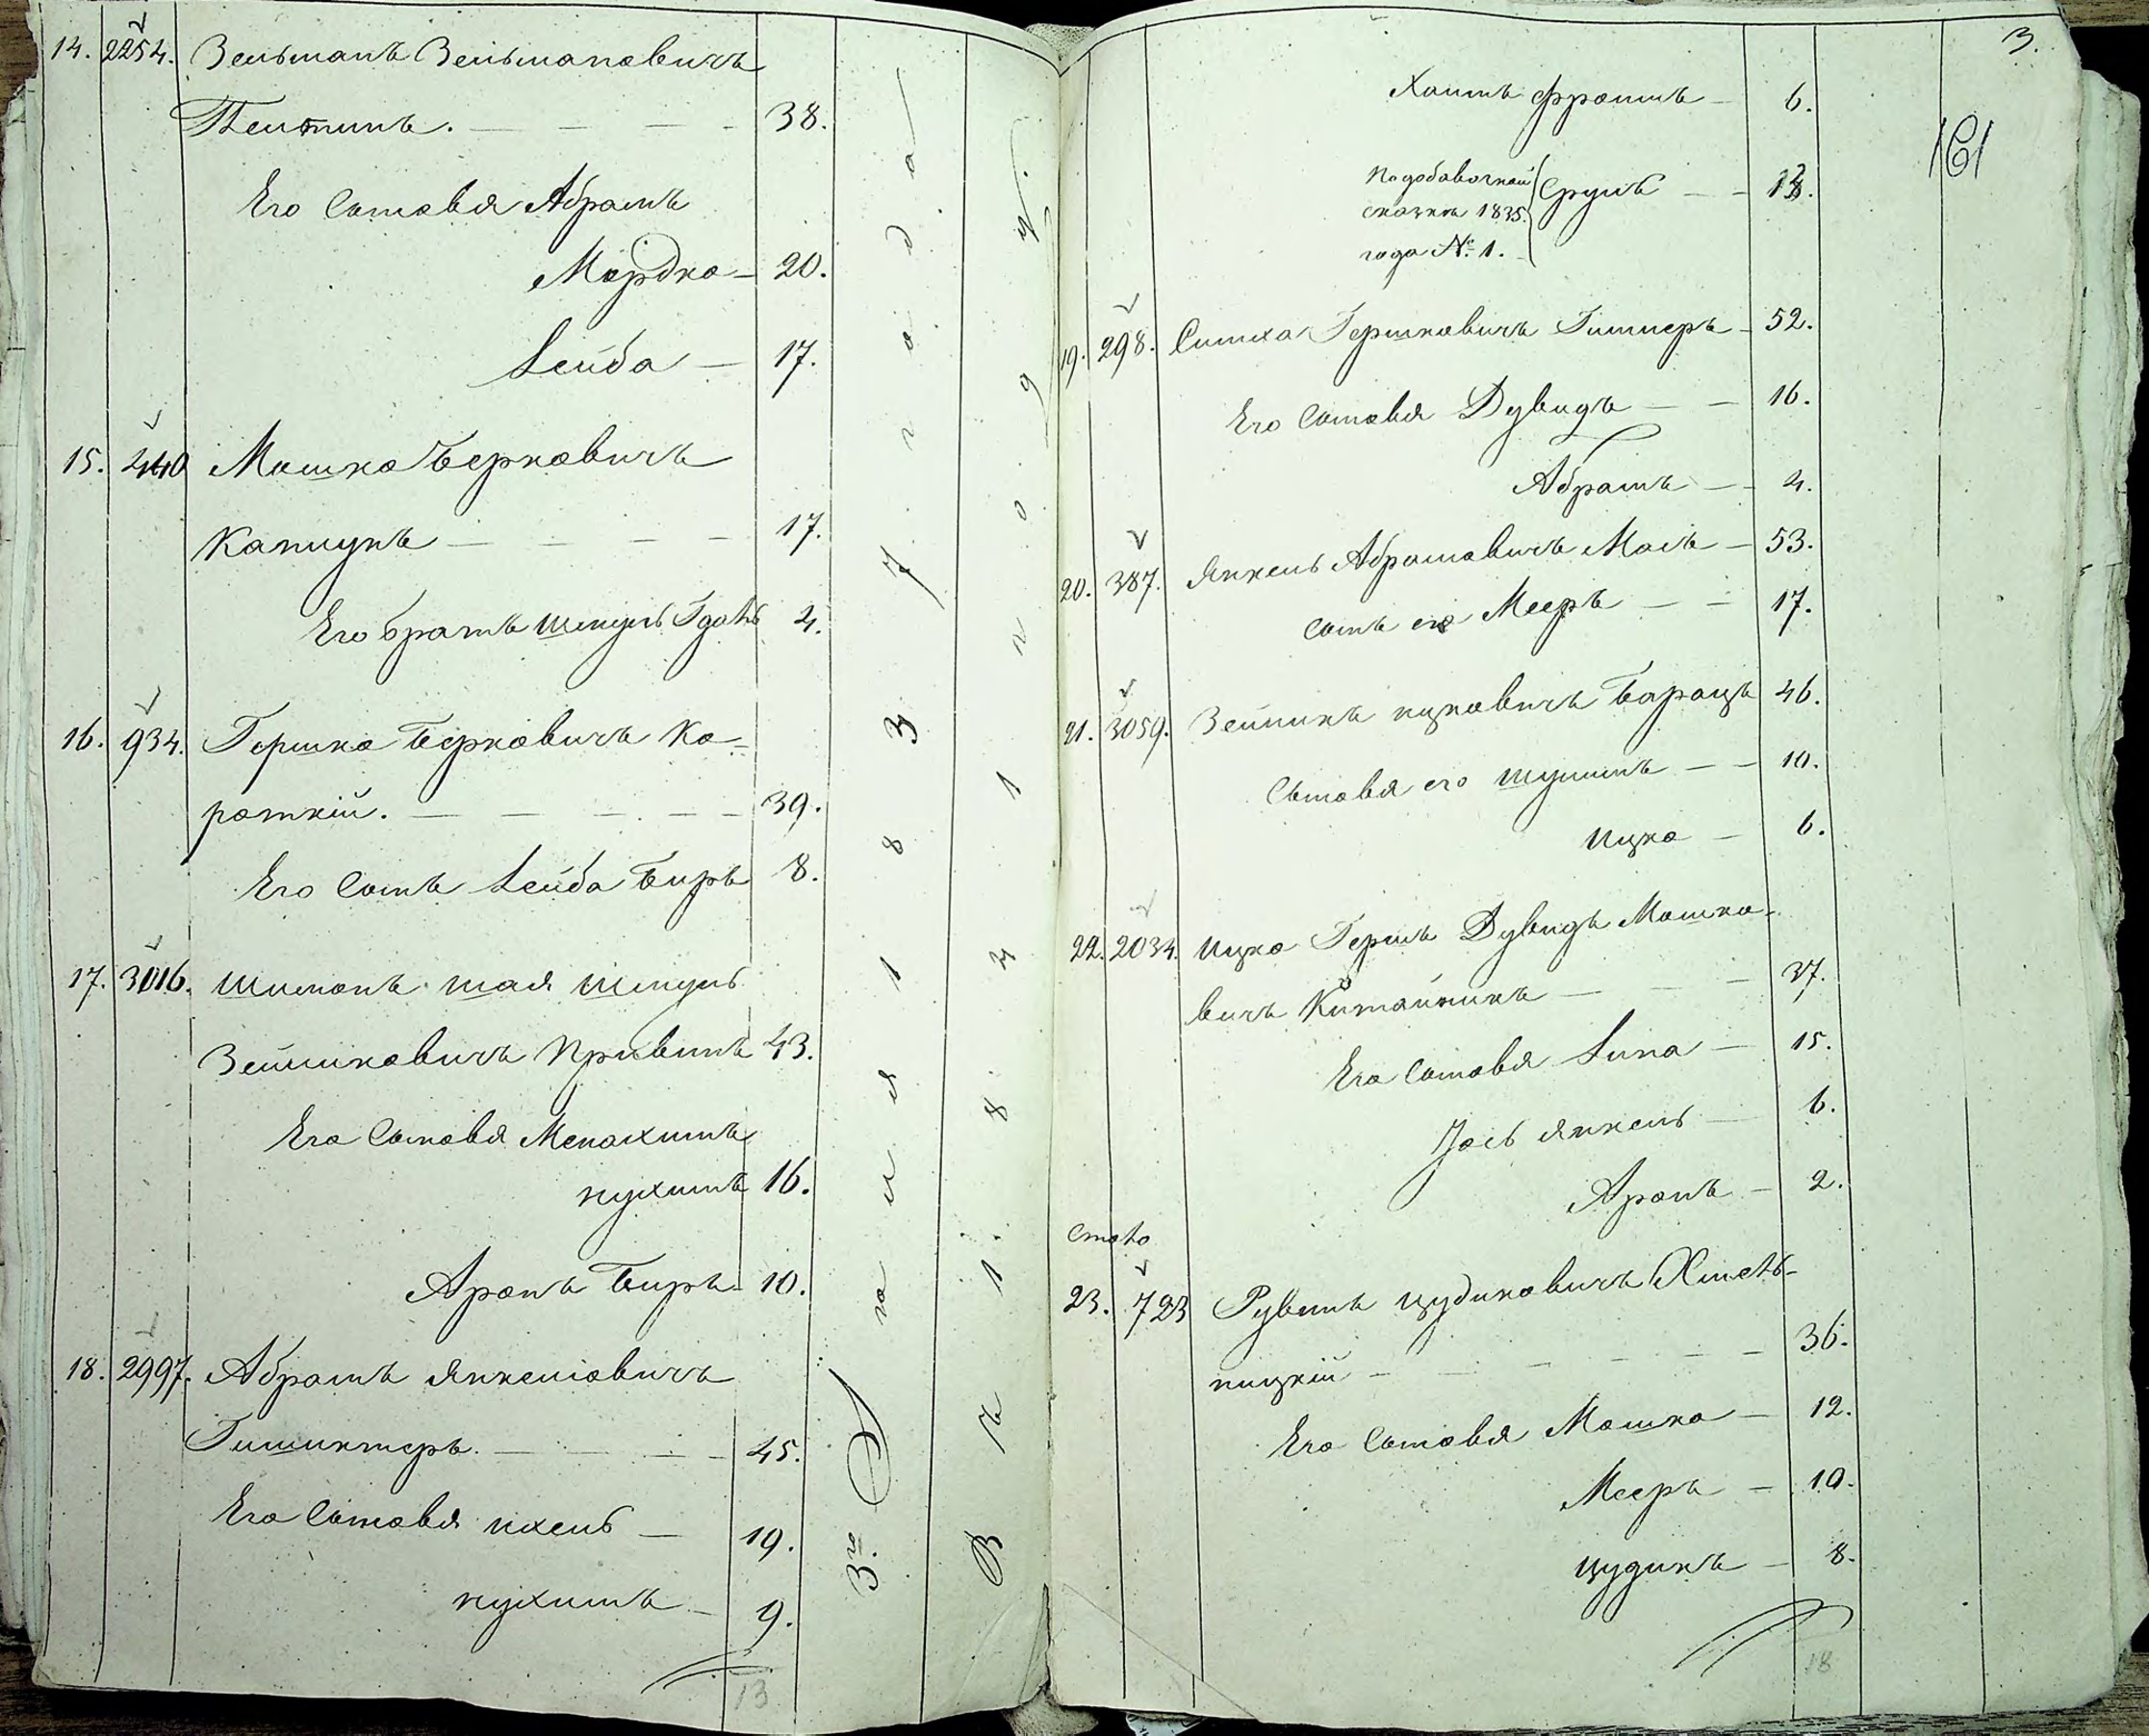 14. 2254. Зельманъ Зельмановичъ
Пельтинъ. — 38.
Его сыновья Абрамъ
Мордко — 20.
Лейба — 17.
15. 440 Мошко Берковичъ
Капцунъ — 17.
Его братъ Шмуль 4.
16. 934. Гершко Берковичъ Ко-
роткій. — 39.
Его сынъ Лейба Биръ 8.
17. 3016. Шимонъ Шая Шмуль
Зейликовичъ Привинъ 43.
Его сыновья Менахимъ
Нухимъ 16.
Аронъ Биръ 10.
18. 2997. Абрамъ Янкелiовичъ
45.
Его сыновья Ихель — 19.
Нухимъ — 9.
13
3го Апреля 1837. года
Въ 1834. году.
3.
161
Хаимъ Фроимъ — 6.
По добавочной
сказкѣ 1835.
года № 1.
Срулъ — 18.
19. 298. Симха Гершковичъ Гиммеръ — 52.
Его сыновья Дувидъ — 16.
Абрамъ — 4.
20. 387. Янкель Абрамовичъ Маль — 53.
Сынъ его Мееръ — 17.
21. 3059. Зейликъ Ицковичъ Барацъ 46.
Сыновья его Шулимъ — 10.
Ицко — 6.
22. 2034. Ицко Гершъ Дувидъ Мошко-
вичъ Китайникъ — 37.
Его сыновья Липа — 15.
Іось Янкель — 6.
Аронъ — 2.
23. 723 Рувинъ Юдиковичъ Хмѣль-
ницкій — 36.
Его сыновья Мошко — 12.
Мееръ — 10.
Юдикъ — 8.
18